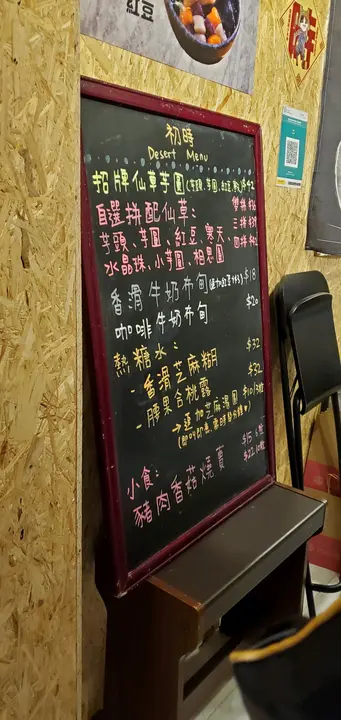 紅豆
初時
Desert Menu
招牌仙草芋圓(芋頭、芋圓、紅豆 $42
自選拼配仙草： 雙拼 $36
芋頭、芋圓、紅豆、寒天 三拼 $39
水晶珠、小芋圓、相思圓 四拼 $42
香滑牛奶布甸 $18
咖啡牛奶布甸 $20
熱糖水：
-香滑芝麻糊 $32
-腰果合桃露 $32
→追加芝麻湯圓 $10/3粒
小食： $15 6隻
豬肉香菇燒賣 $22 10隻